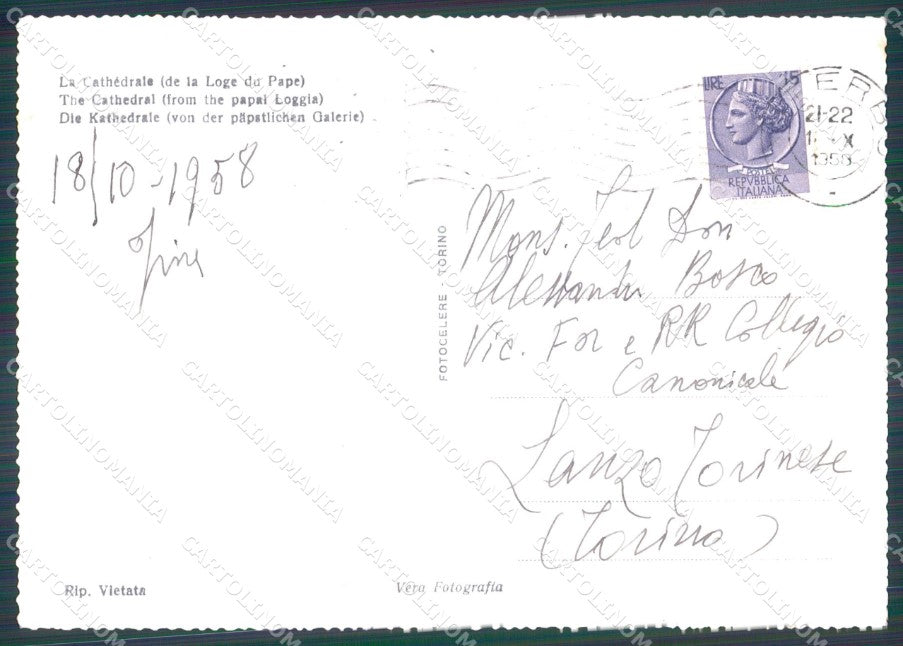 La Cathédrale (de la Loge du Pape)
The Cathedral (from the papal Loggia)
Die Kathedrale (von der päpstlichen Galerie)
18/10-1958
LIRE 15
POSTE
REPVBBLICA
ITALIANA
21-22
X
1958
FOTOCELERE - TORINO
Mons. Teol Don
Alessandro Bosco
Vic. For e RR Collegio
Canonicale
Lanzo Torinese
(Torino)
Rip. Vietata
Vera Fotografia
CARTOLINOMANIA